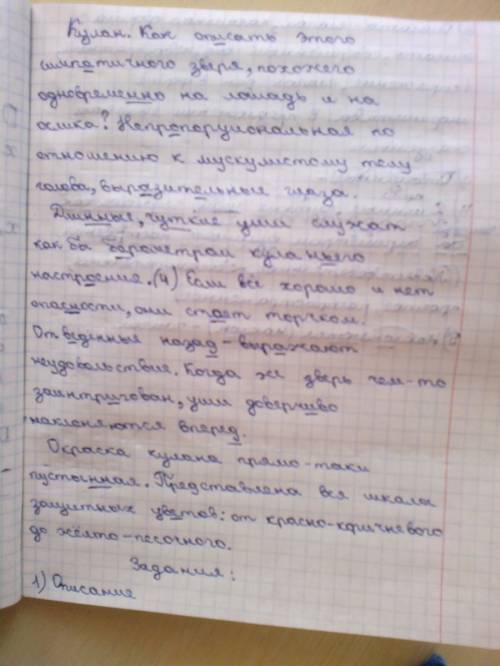 Кулан. Как описать этого
симпатичного зверя, похожего
одновременно на лошадь и на
ослика? Непропорциональная по
отношению к мускулистому телу
голова, выразительные глаза.
Длинные, чуткие уши служат
как бы барометром куланьего
настроения. (4) Если всё хорошо и нет
опасности, они стоят торчком.
Отведённые назад - выражают
неудовольствие. Когда же зверь чем-то
заинтригован, уши доверчиво
наклоняются вперед.
Окраска кулана прямо-таки
пустынная. Представлена вся шкала
защитных цветов: от красно-коричневого
до жёлто-песочного.
Задания:
1) Описание